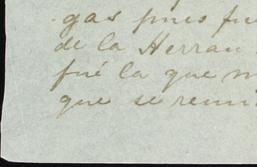 gas pues fu
de la Herran
fué la que m
que se reuni